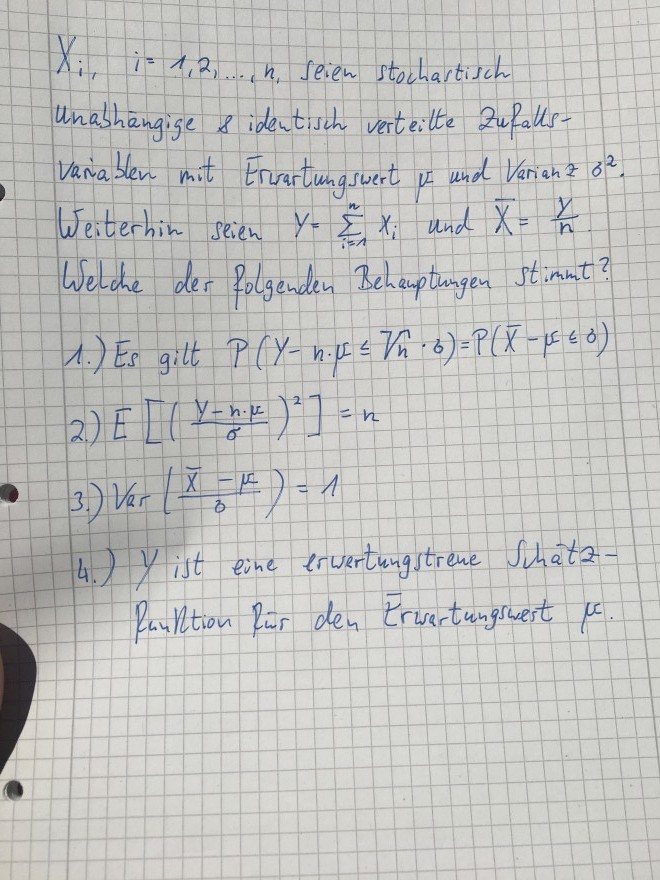 Xi, i = 1,2,...,n, seien stochastisch
unabhängige & identisch verteilte Zufalls-
variablen mit Erwartungswert μ und Varianz σ².
Weiterhin seien Y = ∑ᵢ₌₁ⁿ Xi und X̄ = Y/n.
Welche der folgenden Behauptungen stimmt?
1.) Es gilt P(Y - n·μ ≤ √n · σ) = P(X̄ - μ ≤ σ)
2.) E[((Y - n·μ)/σ)²] = n
3.) Var((X̄ - μ)/σ) = 1
4.) Y ist eine erwertungstreue Schätz-
funktion für den Erwartungswert μ.